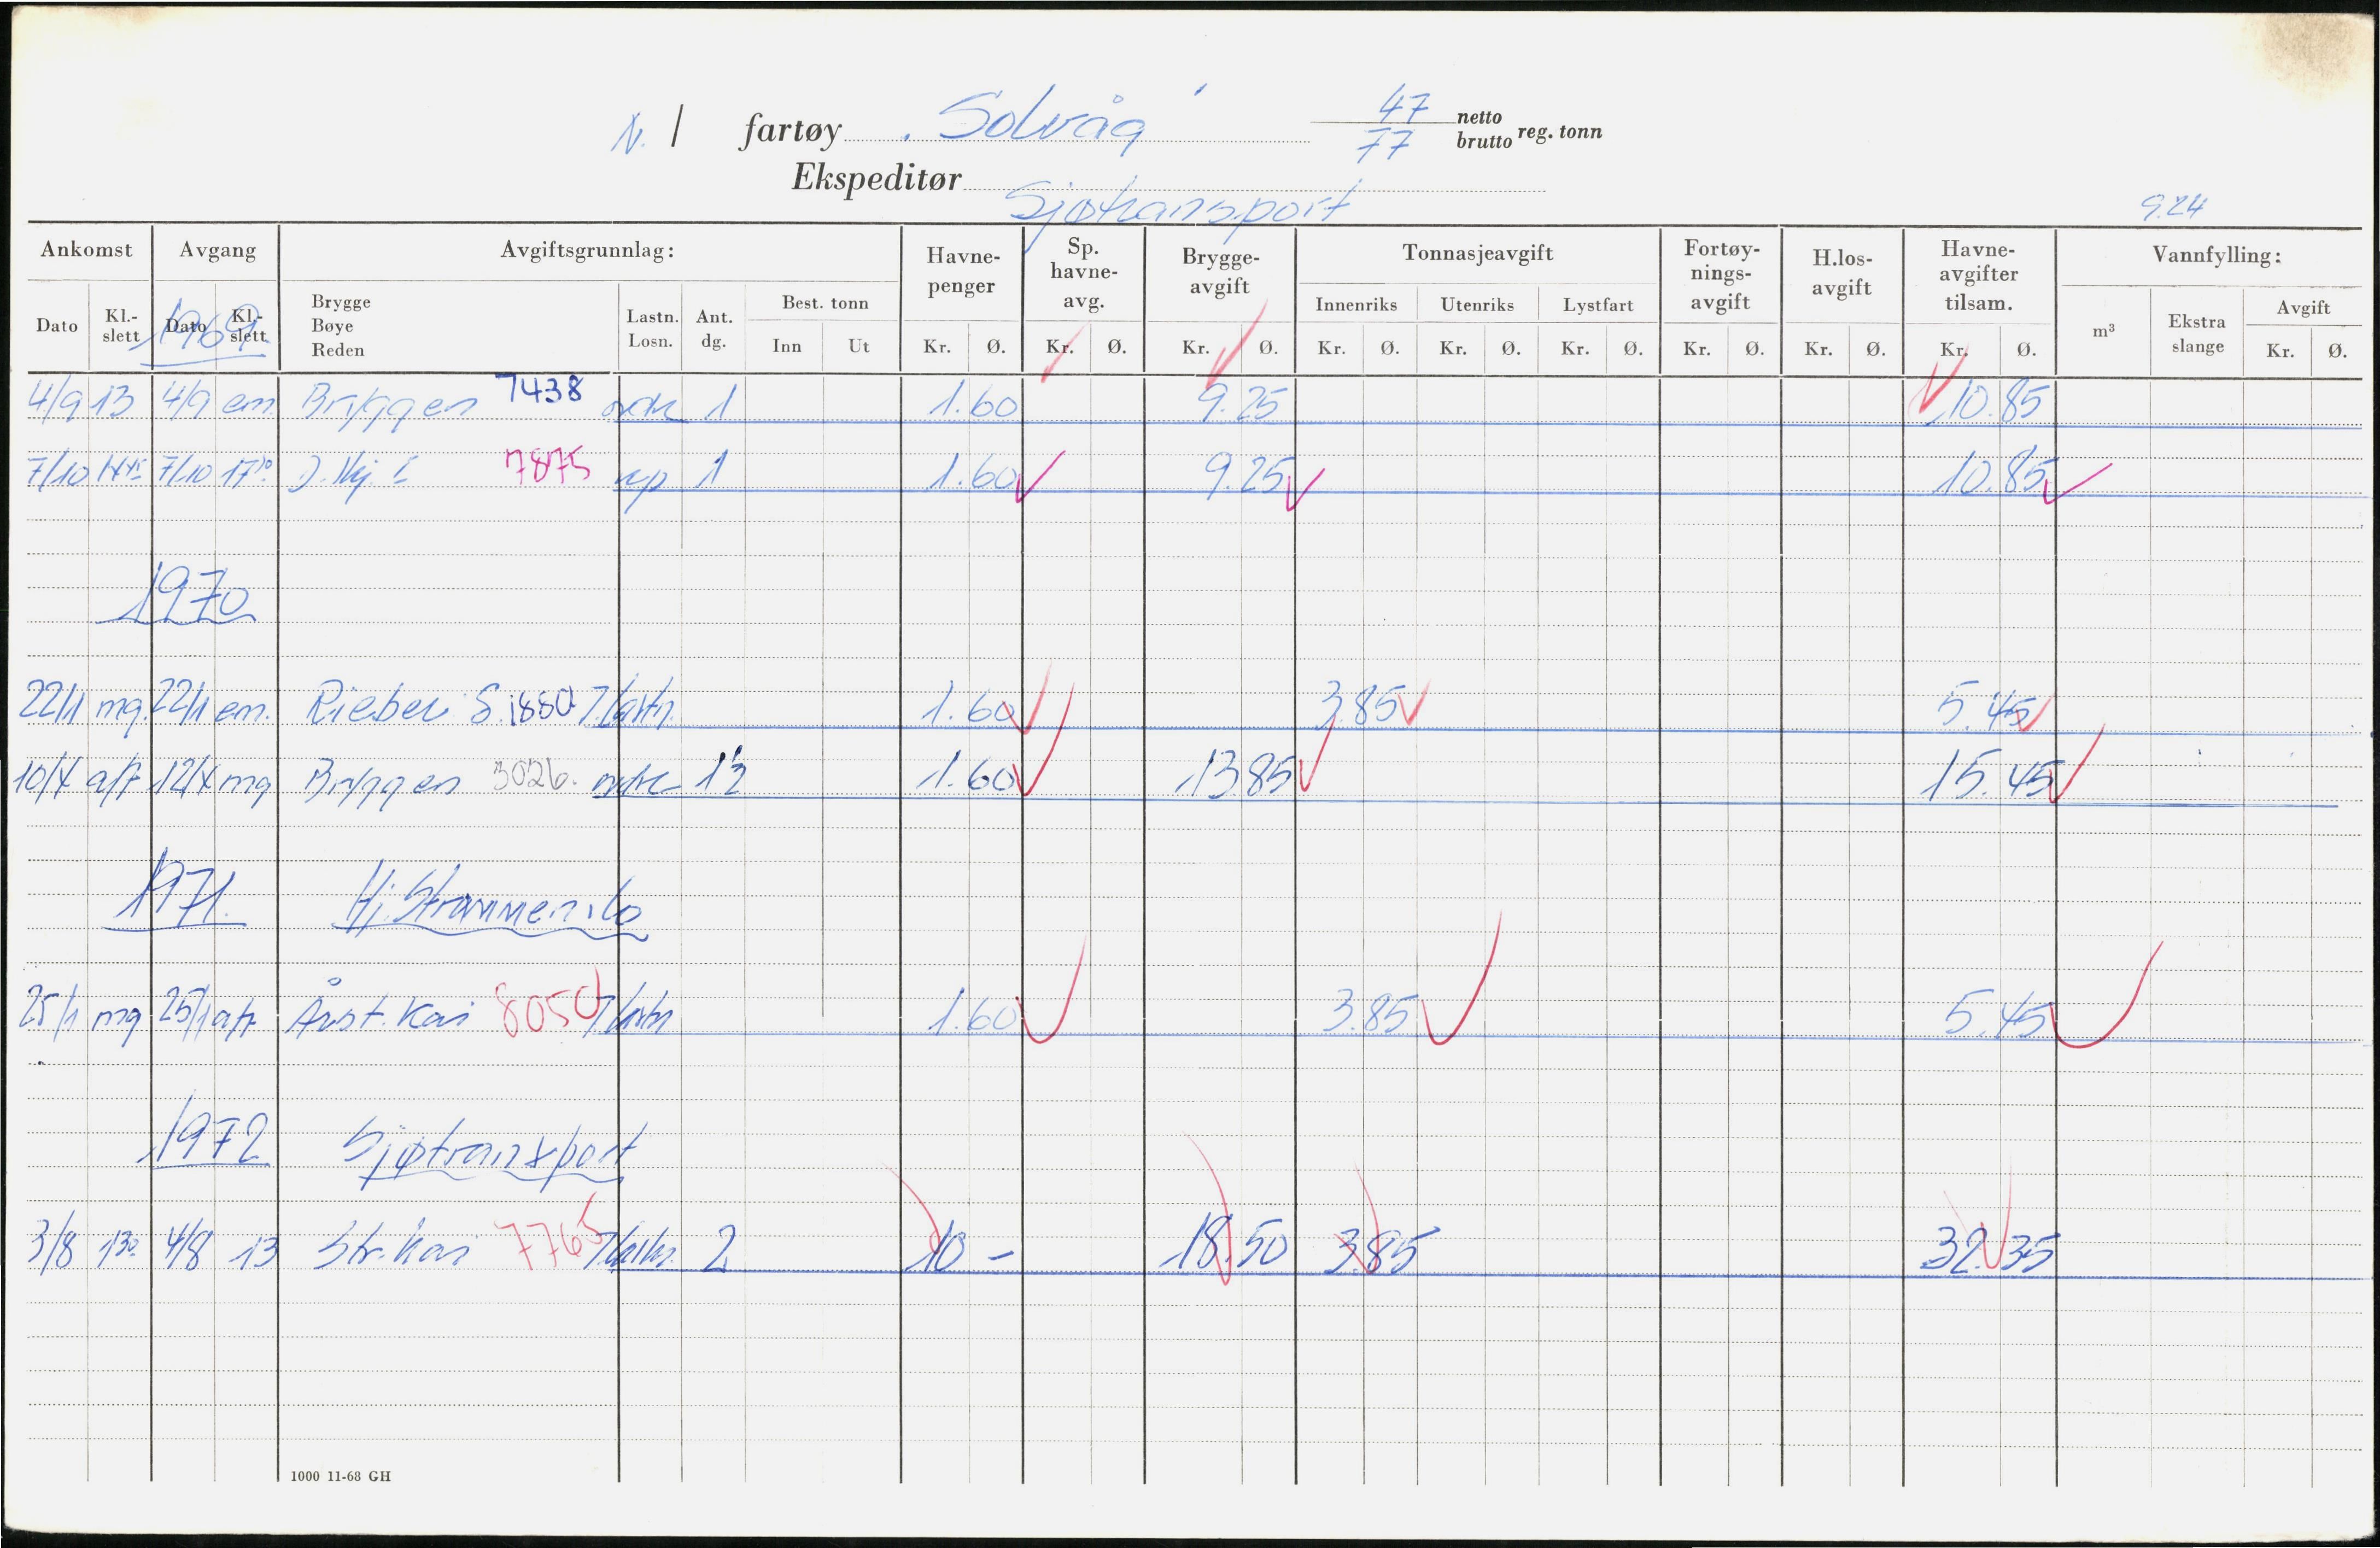 N. / fartøy "Solvåg" 47 netto
77 brutto reg. tonn
Ekspeditør Sjøtransport
9.24
Ankomst Avgang Avgiftsgrunnlag: Havne-penger Sp. havne-avg. Brygge-avgift Tonnasjeavgift Fortøy-nings-avgift H.los-avgift Havne-avgifter tilsam. Vannfylling:
Dato Kl.-slett Dato Kl.-slett Brygge Bøye Reden Lastn. Losn. Ant. dg. Best. tonn Innenriks Utenriks Lystfart m³ Ekstra slange Avgift
Inn Ut Kr. Ø. Kr. Ø. Kr. Ø. Kr. Ø. Kr. Ø. Kr. Ø. Kr. Ø. Kr. Ø. Kr. Ø. Kr. Ø.
1969
4/9 13 4/9 em Bryggen 7438 1 1.60 9.25 10.85
7/10 7/10 17 7875 1 1.60 9.25 10.85
1970
22/1 mg. 22/1 em. Rieber S. 1880 T.lastn. 1.60 3.85 5.45
10/4 aft 12/4 mg Bryggen 3026. 1.60 13.85 15.45
1971. Hj. Strømmen
25/1 mg 25/1 aft Årst. Kai 8050 T.lastn 1.60 3.85 5.45
1972 Sjøtransport
3/8 13 4/8 13 Str. kai 7765 T.lastn. 2 10 - 18.50 3.85 32.35
1000 11-68 GH